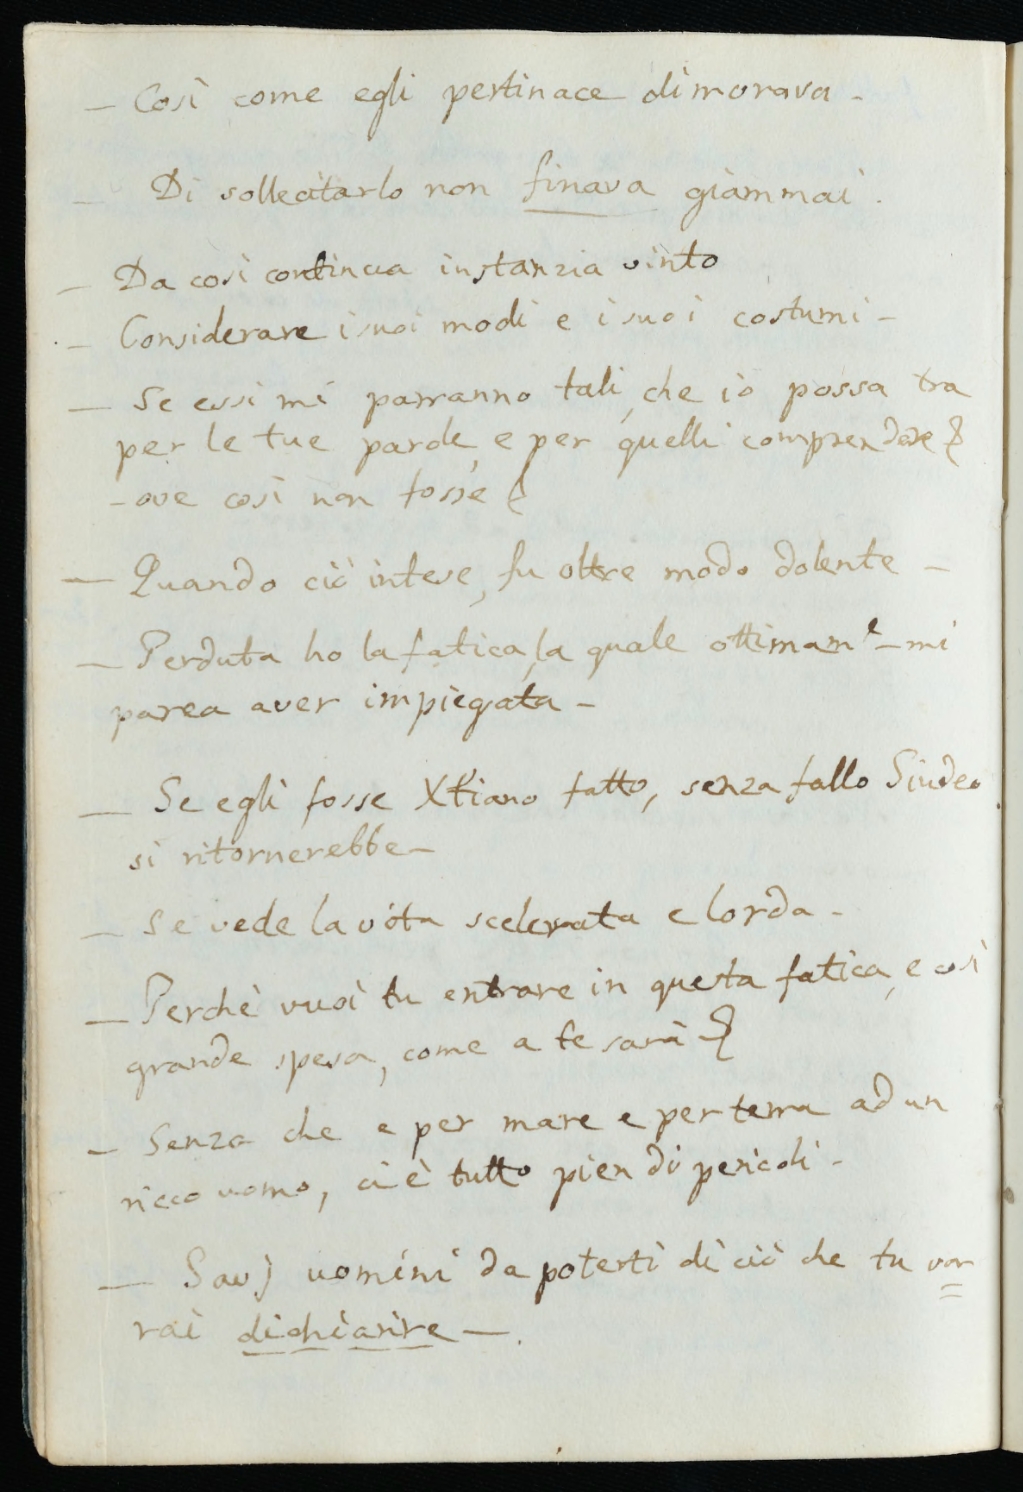 — Così come egli pertinace dimorava -
— Di sollecitarlo non finava giammai.
— Da così continua instanzia vinto
— Considerare i suoi modi e i suoi costumi -
— Se essi mi parranno tali, che io possa tra
per le tue parole, e per quelli comprendere
- ove così non fosse
— Quando ciò intese, fu oltre modo dolente -
— Perduta ho la fatica, la quale ottimamᵉ - mi
parea aver impiegata -
— Se egli fosse Xtiano fatto, senza fallo Giudeo
si ritornerebbe -
— Se vede la vita scelerata e lorda -
— Perchè vuoi tu entrare in questa fatica, e così
grande spesa, come a te sarà
— Senza che e per mare e per terra ad un
ricco uomo, ci è tutto pien di pericoli -
— Savj uomini da poterti di ciò che tu vor
rai dichiarire —.